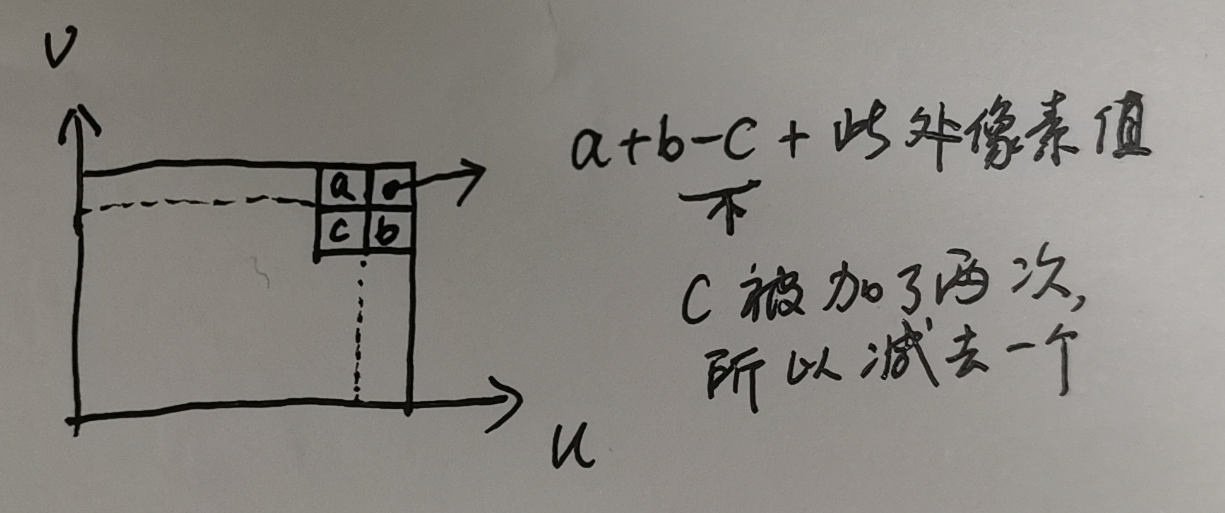 v
a
c b
u
a+b-c+此处像素值
不
C被加了两次,
所以减去一个